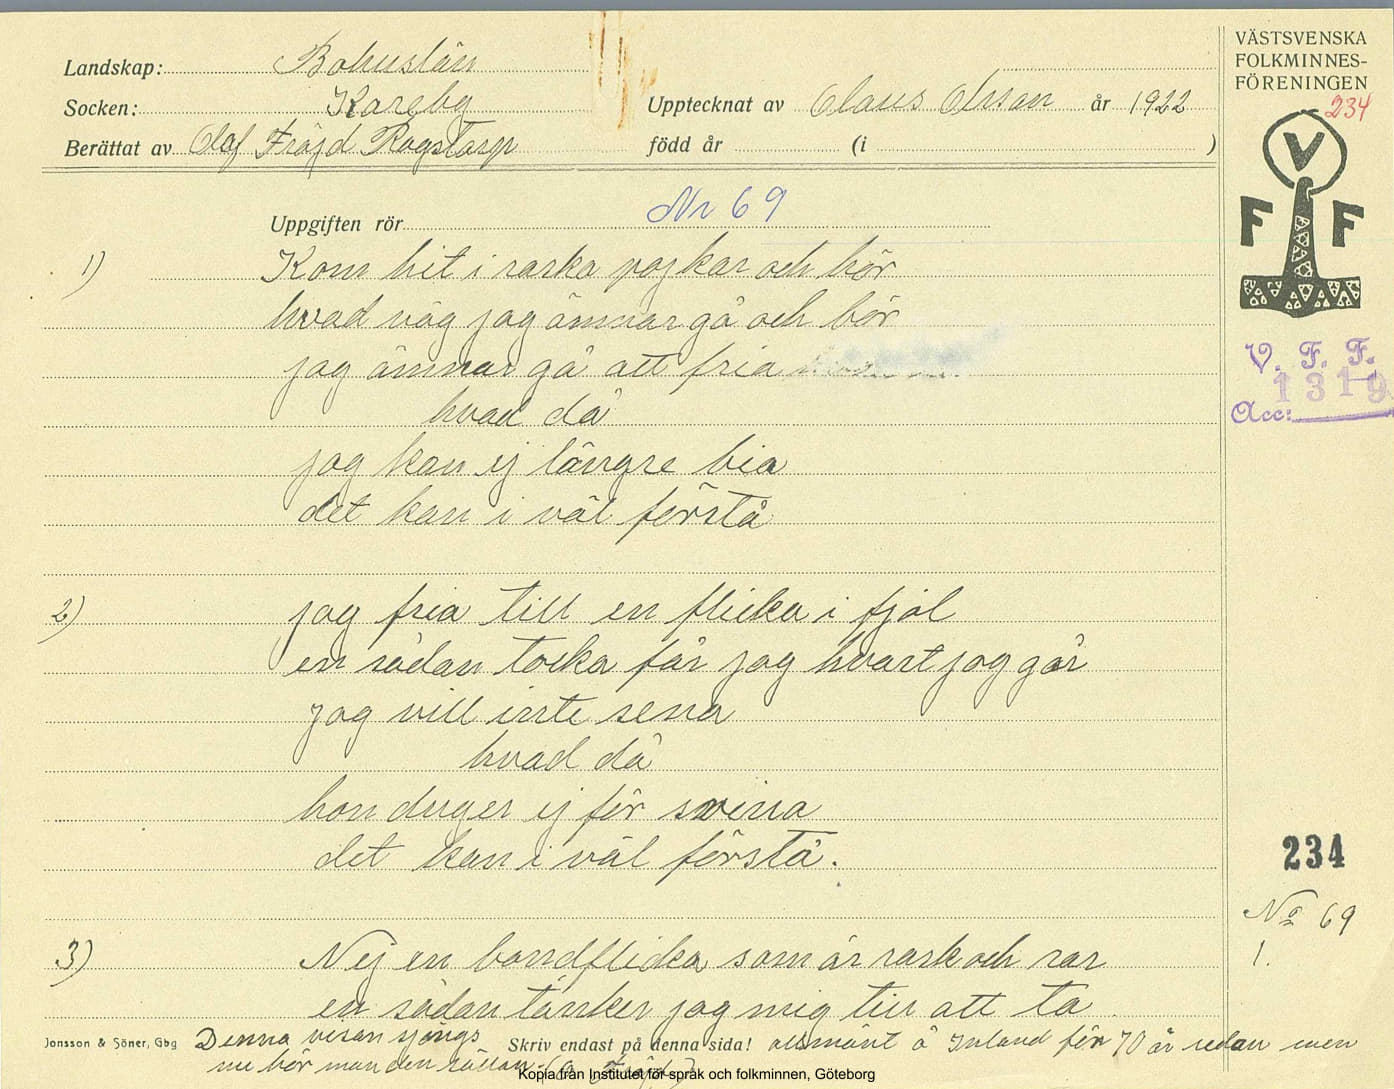 Landskap: Bohuslän
Socken: Kareby
Berättat av Olof Fröjd Rogstorp
Upptecknat av Claus Olsson år 1922
född år (i )
VÄSTSVENSKA
FOLKMINNES-
FÖRENINGEN
234
V
F F
V. F. F.
1319
Acc:
Uppgiften rör Nr 69
1) Kom hit i raska pojkar och hör
hvad väg jag ämnar gå och hör
jag ämnar gå att fria
hvad då
jag kan ej längre bia
det kan i väl förstå
2) jag fria till en flicka i fjol
en sådan tocka får jag hvart jag går
jag vill inte sena
hvad då
hon duger ej för svina
det kan i väl förstå.
234
No 69
1.
3) Nej en bondflicka som är rask och rar
en sådan tänker jag mig till att ta
Jonsson & Söner, Gbg
Skriv endast på denna sida!
Denna visan sjöngs allmänt å Inland för 70 år sedan men
nu hör man den sällan. (O Fröjd)
Kopia från Institutet för språk och folkminnen, Göteborg